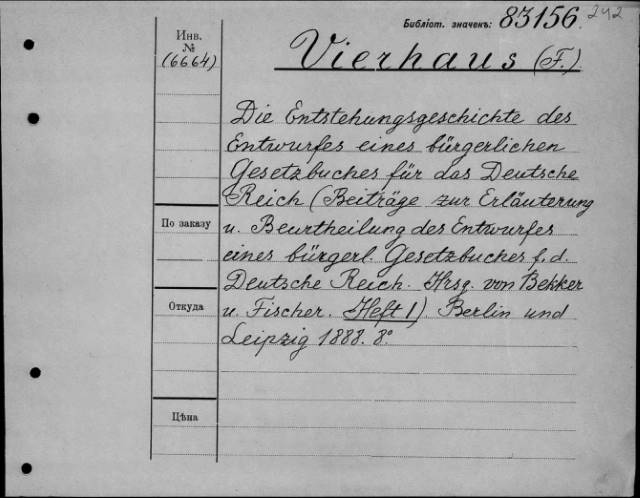 Библіот. значекъ: 83156. 242
Инв.
№
(6664)
Vierhaus (F.)
Die Entstehungsgeschichte des
Entwurfes eines bürgerlichen
Gesetzbuches für das Deutsche
Reich (Beiträge zur Erläuterung
u. Beurtheilung des Entwurfes
eines bürgerl. Gesetzbuches f. d.
Deutsche Reich. Hrsg. von Bekker
u. Fischer. Heft 1). Berlin und
Leipzig 1888. 8°
По заказу
Откуда
Цѣна